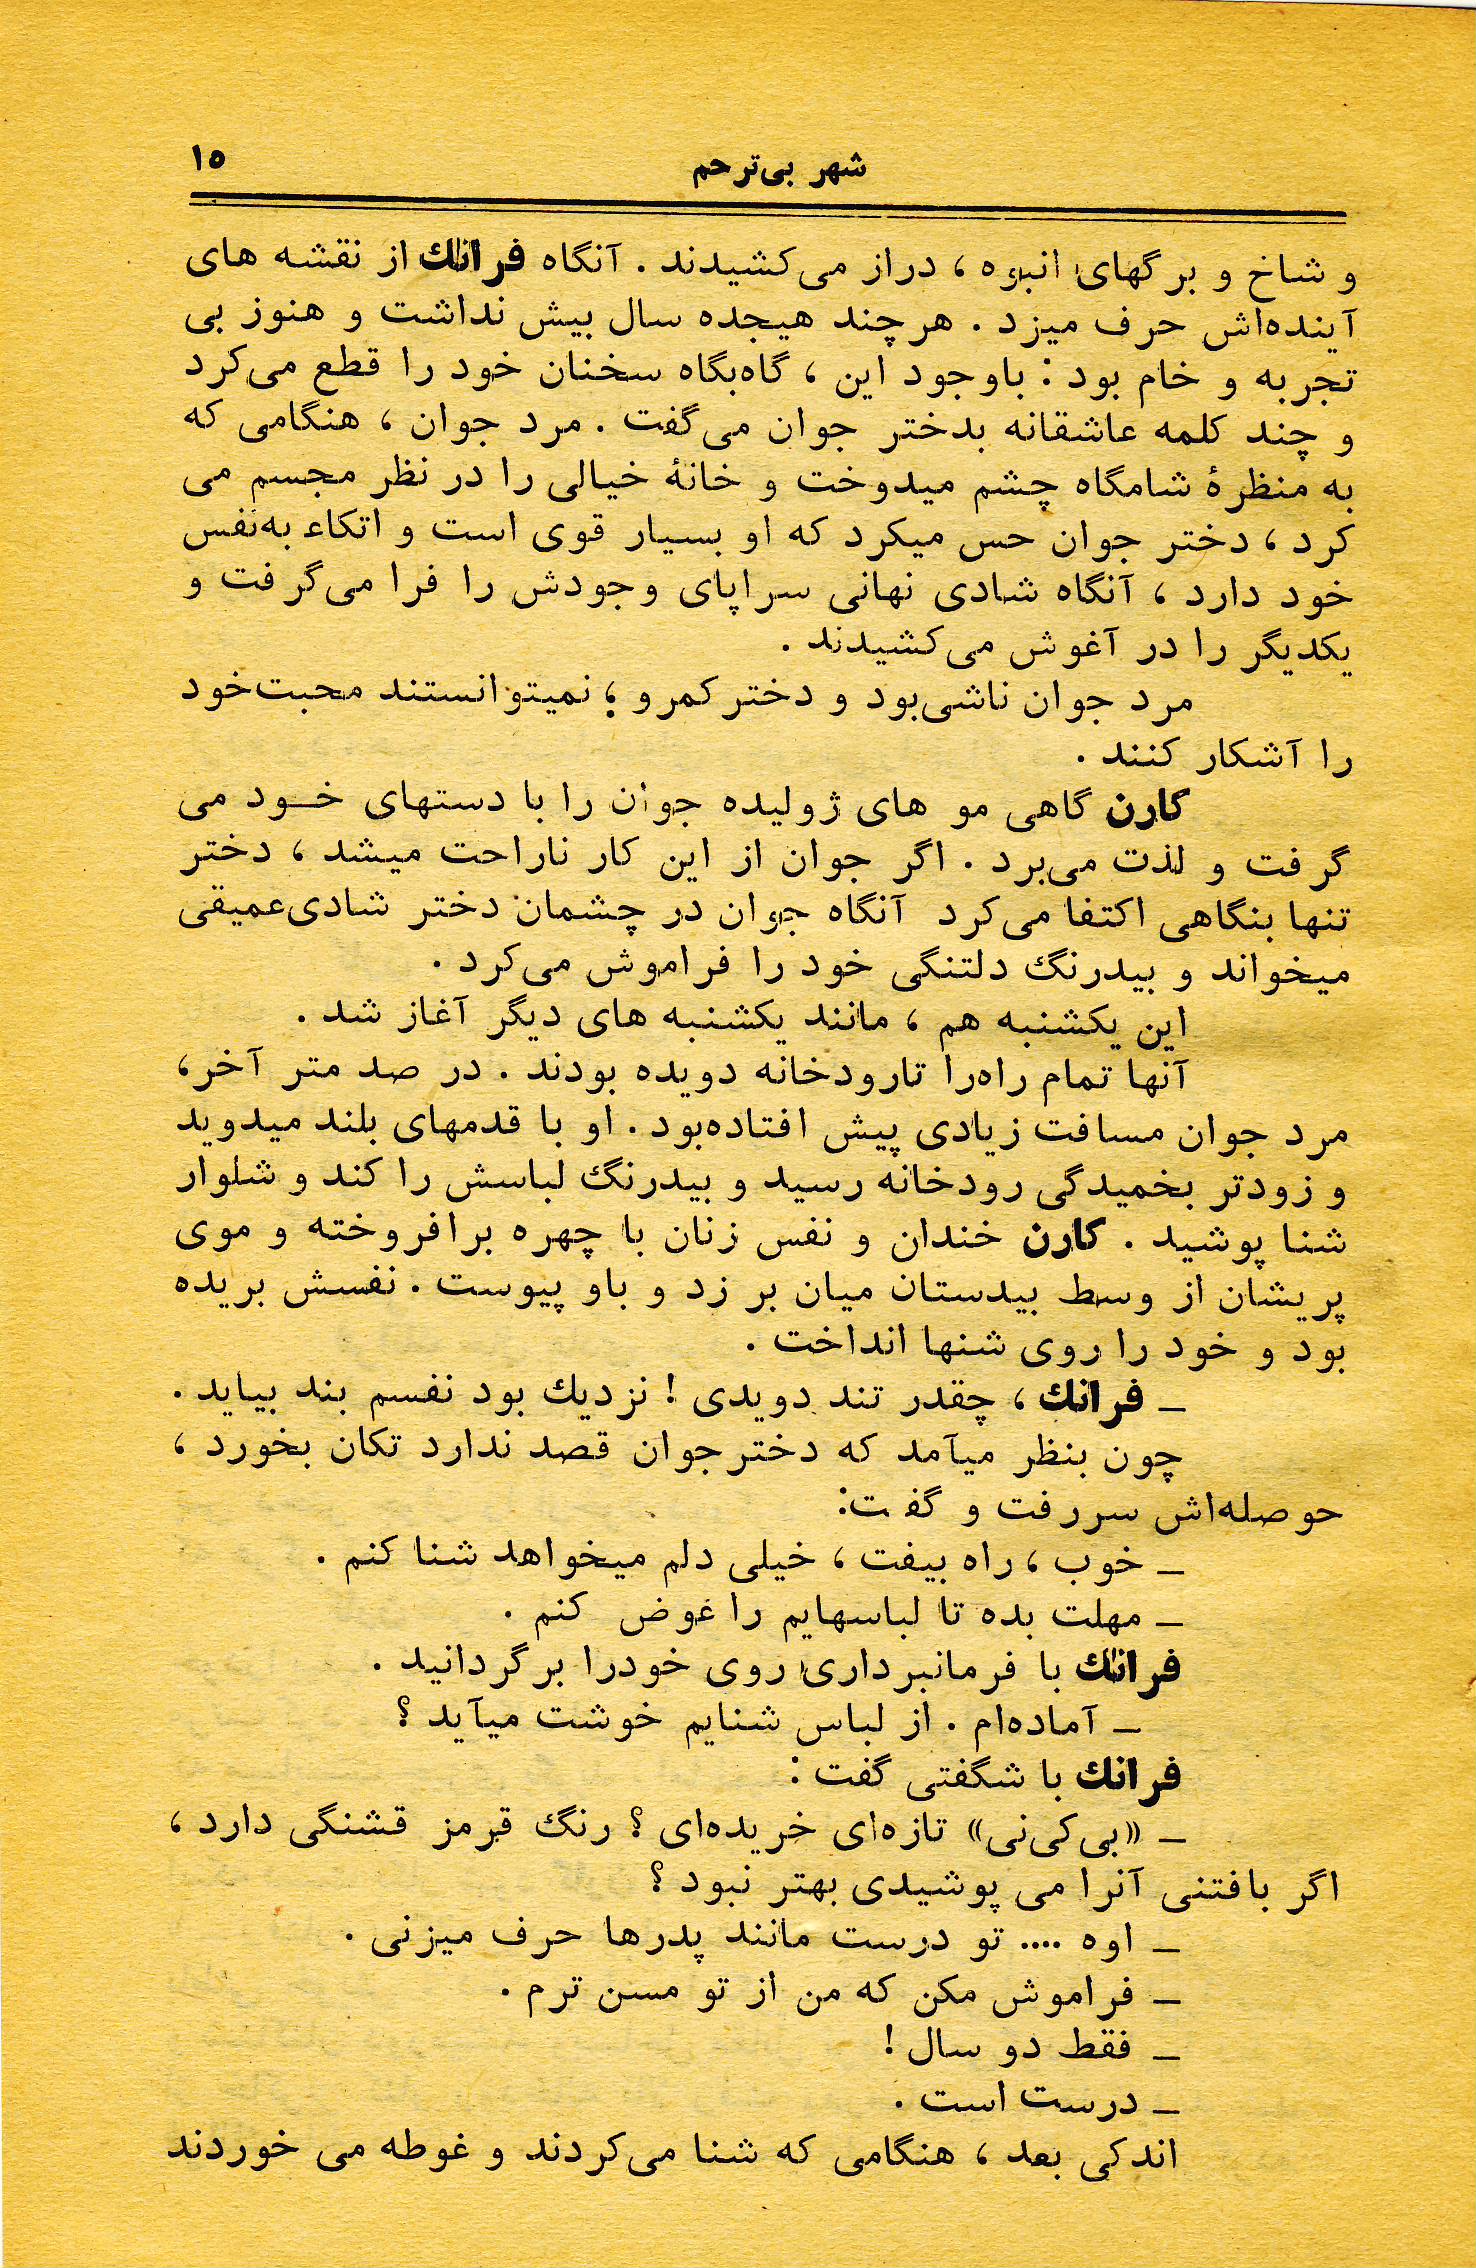 شهر بی‌ترحم ۱۵
و شاخ و برگهای انبوه ، دراز می‌کشیدند . آنگاه فرانك از نقشه های
آینده‌اش حرف میزد . هرچند هیجده سال بیش نداشت و هنوز بی
تجربه و خام بود : باوجود این ، گاه‌بگاه سخنان خود را قطع می‌کرد
و چند کلمه عاشقانه بدختر جوان می‌گفت . مرد جوان ، هنگامی که
به منظرهٔ شامگاه چشم میدوخت و خانهٔ خیالی را در نظر مجسم می
کرد ، دختر جوان حس میکرد که او بسیار قوی است و اتکاء به‌نفس
خود دارد ، آنگاه شادی نهانی سراپای وجودش را فرا می‌گرفت و
یکدیگر را در آغوش می‌کشیدند .
مرد جوان ناشی‌بود و دختر کمرو ؛ نمیتوانستند محبت‌خود
را آشکار کنند .
کارن گاهی مو های ژولیده جوان را با دستهای خود می
گرفت و لذت می‌برد . اگر جوان از این کار ناراحت میشد ، دختر
تنها بنگاهی اکتفا می‌کرد آنگاه جوان در چشمان دختر شادی‌عمیقی
میخواند و بیدرنگ دلتنگی خود را فراموش می‌کرد .
این یکشنبه هم ، مانند یکشنبه های دیگر آغاز شد .
آنها تمام راه‌را تارودخانه دویده بودند . در صد متر آخر،
مرد جوان مسافت زیادی پیش افتاده‌بود . او با قدمهای بلند میدوید
و زودتر بخمیدگی رودخانه رسید و بیدرنگ لباسش را کند و شلوار
شنا پوشید . کارن خندان و نفس زنان با چهره برافروخته و موی
پریشان از وسط بیدستان میان بر زد و باو پیوست . نفسش بریده
بود و خود را روی شنها انداخت .
ـ فرانك ، چقدر تند دویدی ! نزدیك بود نفسم بند بیاید .
چون بنظر میآمد که دختر جوان قصد ندارد تکان بخورد ،
حوصله‌اش سررفت و گفت:
ـ خوب ، راه بیفت ، خیلی دلم میخواهد شنا کنم .
ـ مهلت بده تا لباسهایم را عوض کنم .
فرانك با فرمانبرداری روی خودرا برگردانید .
ـ آماده‌ام . از لباس شنایم خوشت میآید ؟
فرانك با شگفتی گفت :
ـ «بی‌کی‌نی» تازه‌ای خریده‌ای ؟ رنگ قرمز قشنگی دارد ،
اگر بافتنی آنرا می پوشیدی بهتر نبود ؟
ـ اوه .... تو درست مانند پدرها حرف میزنی .
ـ فراموش مکن که من از تو مسن ترم .
ـ فقط دو سال !
ـ درست است .
اندکی بعد ، هنگامی که شنا می‌کردند و غوطه می خوردند